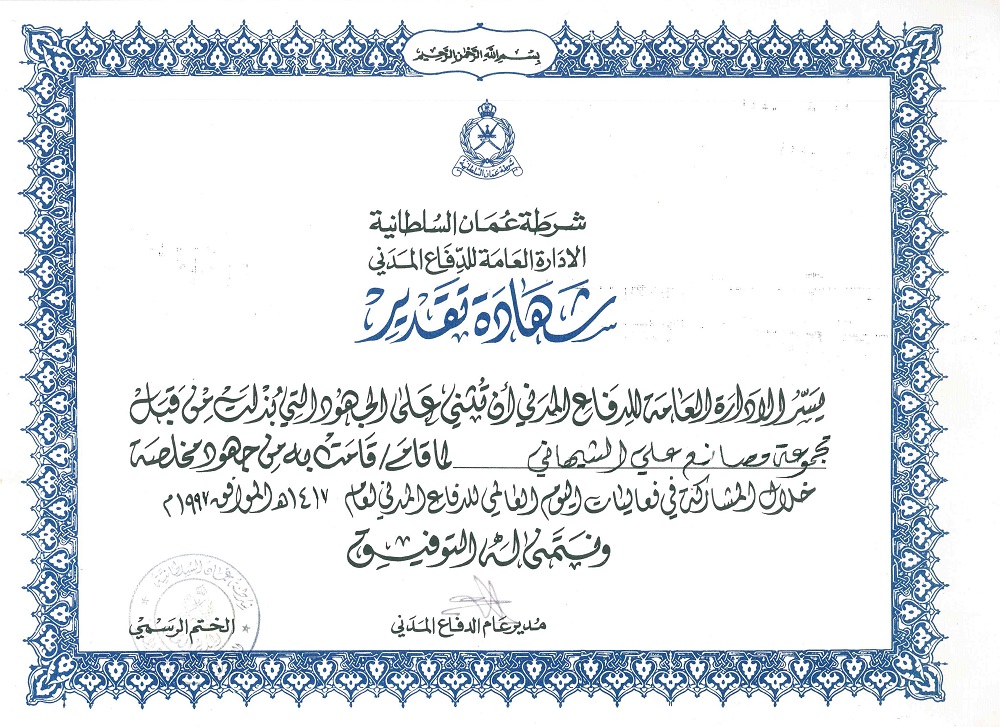 بسم الله الرحمن الرحيم
شرطة عمان السلطانية
شرطة عُمان السُلطانية
الادارة العامة للدِّفاع المَدَني
شَهَادَة تَقدير
يسرّ الادارة العامة للدفاع المدني أن تثني على الجهود التي بُذلت من قبل
مجموعة مصانع علي الشيهاني لما قام/قامت به من جهود مخلصة
خلال المشاركة في فعاليات اليوم العالمي للدفاع المدني لعام ١٤١٧هـ الموافق ١٩٩٧م
ونتمنى له التوفيق
مدير عام الدفاع المدَني
الختم الرسمي
شرطة عمان السلطانية